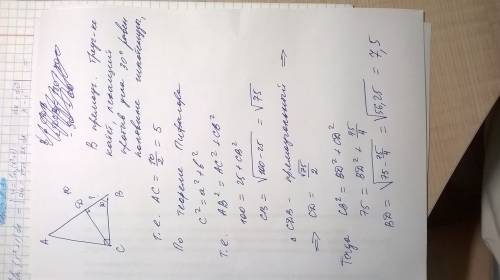 В прямоуг. треуг-ке
катет, лежащий
против угла 30° равен
половине гипотенузы,
т.е. AC = 10/2 = 5
По теореме Пифагора
c² = a² + b²
т.е. AB² = AC² + CB²
100 = 25 + CB²
CB = √100-25 = √75
△ CDB - прямоугольный ⇒
⇒ CD = √75/2
Тогда CB² = BD² + CD²
75 = BD² + 75/4
BD = √75 - 75/4 = √56,25 = 7,5
A
D
B
C